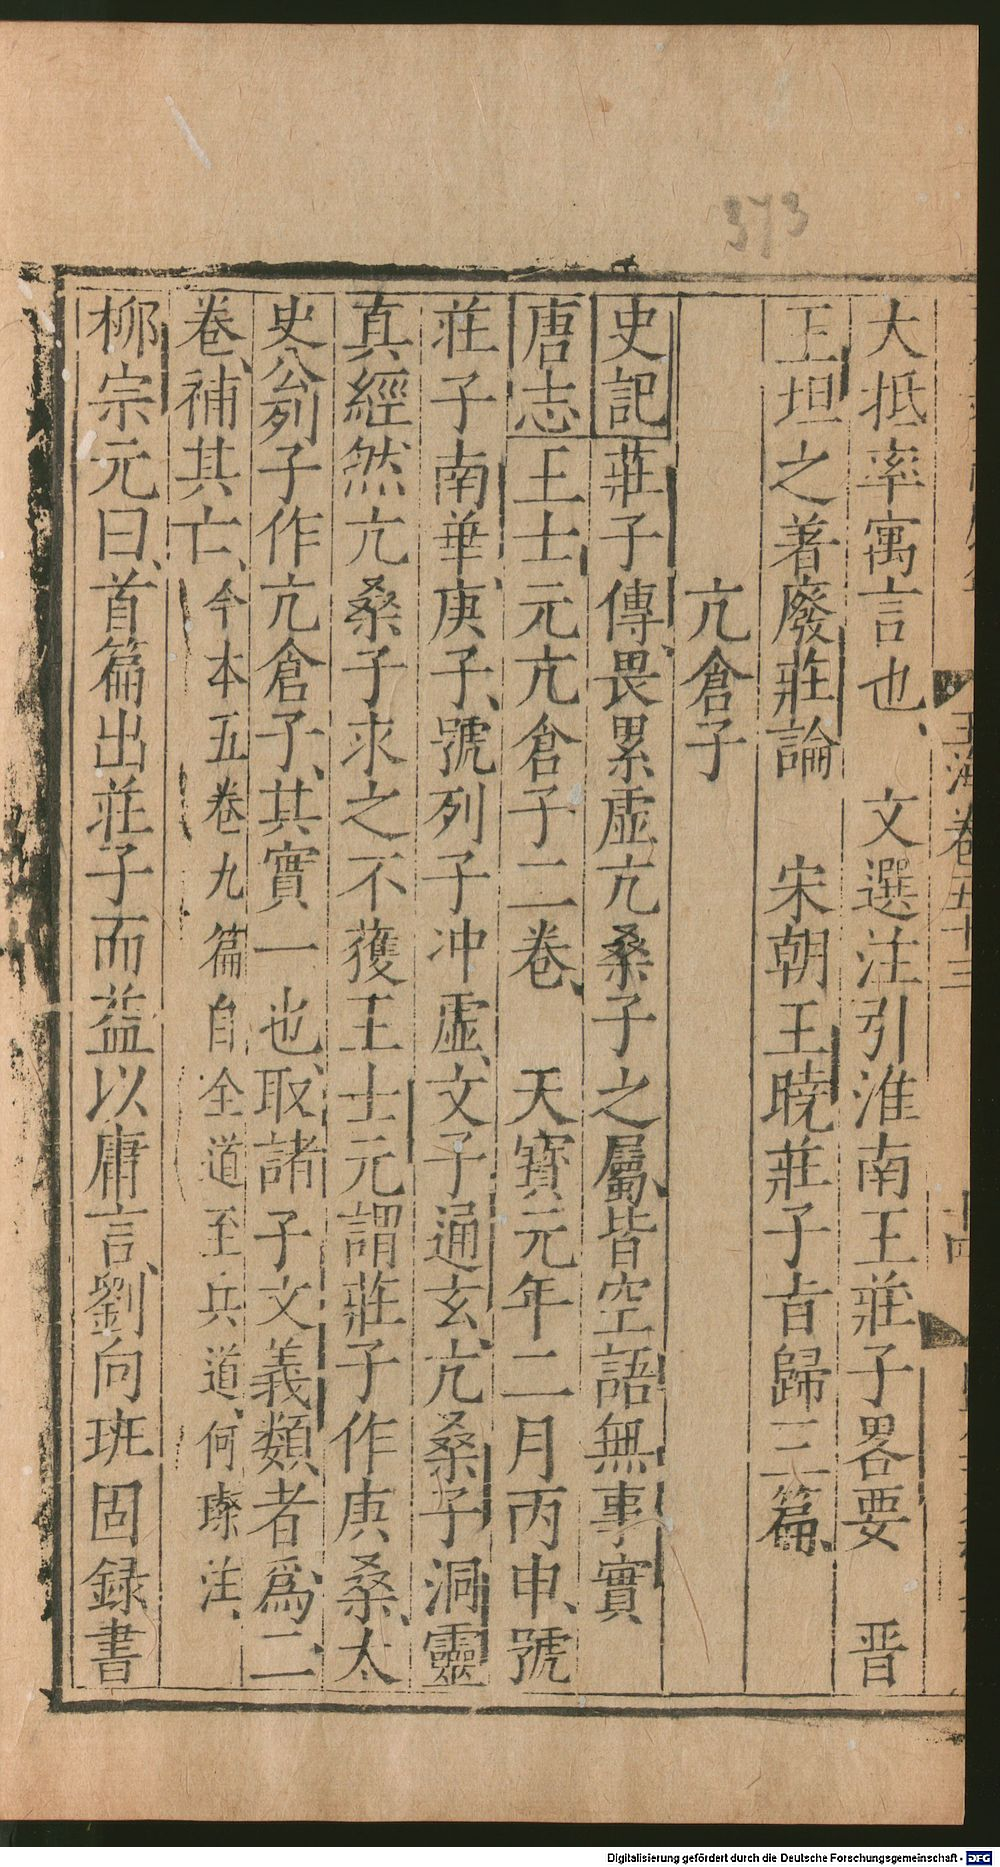 373
玉海卷五十三
十四
大抵率寓言也、　文選注引淮南王莊子畧要　晋
王坦之著廢莊論　宋朝王曉莊子㫖歸三篇、
亢倉子
史記莊子傳、畏累虛亢桑子之屬皆空語無事實
唐志王士元亢倉子二卷、　天寶元年二月丙申、號
莊子南華、庚子、號列子冲虛、文子通玄、亢桑子洞靈
真經然亢桑子求之不獲王士元謂莊子作庚桑、太
史公列子作亢倉子、其實一也、取諸子文義類者、爲二
卷、補其亡、今本五卷九篇自全道至兵道、何璨注、
柳宗元曰、首篇出莊子而益以庸言、劉向班固録書
Digitalisierung gefördert durch die Deutsche Forschungsgemeinschaft - DFG